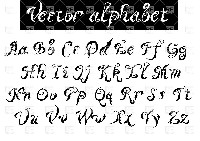 Vector alphabet
Aa Bb Cc Dd Ee Ff Gg
Hh Ii Jj Kk Ll Mm
Nn Oo Pp Qq Rr Ss Tt
Uu Vv Ww Xx Yy Zz